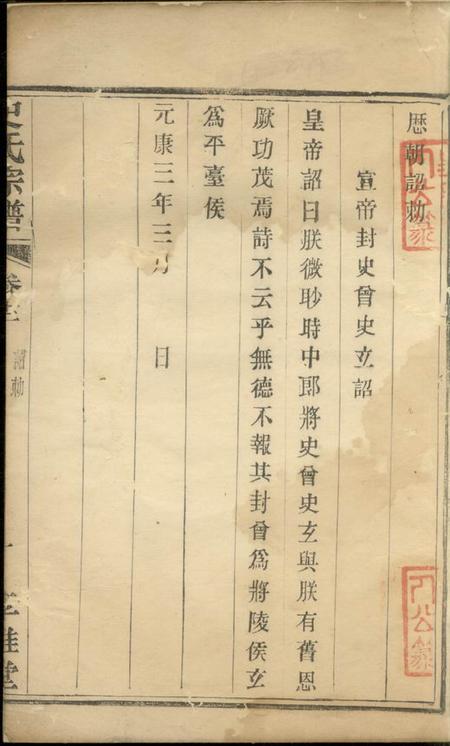 歴朝詔勅
宣帝封史曾史玄詔
皇帝詔曰朕微眇時中郎將史曾史玄與朕有舊恩
厥功茂焉詩不云乎無德不報其封曾爲將陵侯玄
爲平臺侯
元康三年三月 日
史氏宗譜
卷三
詔勅
一